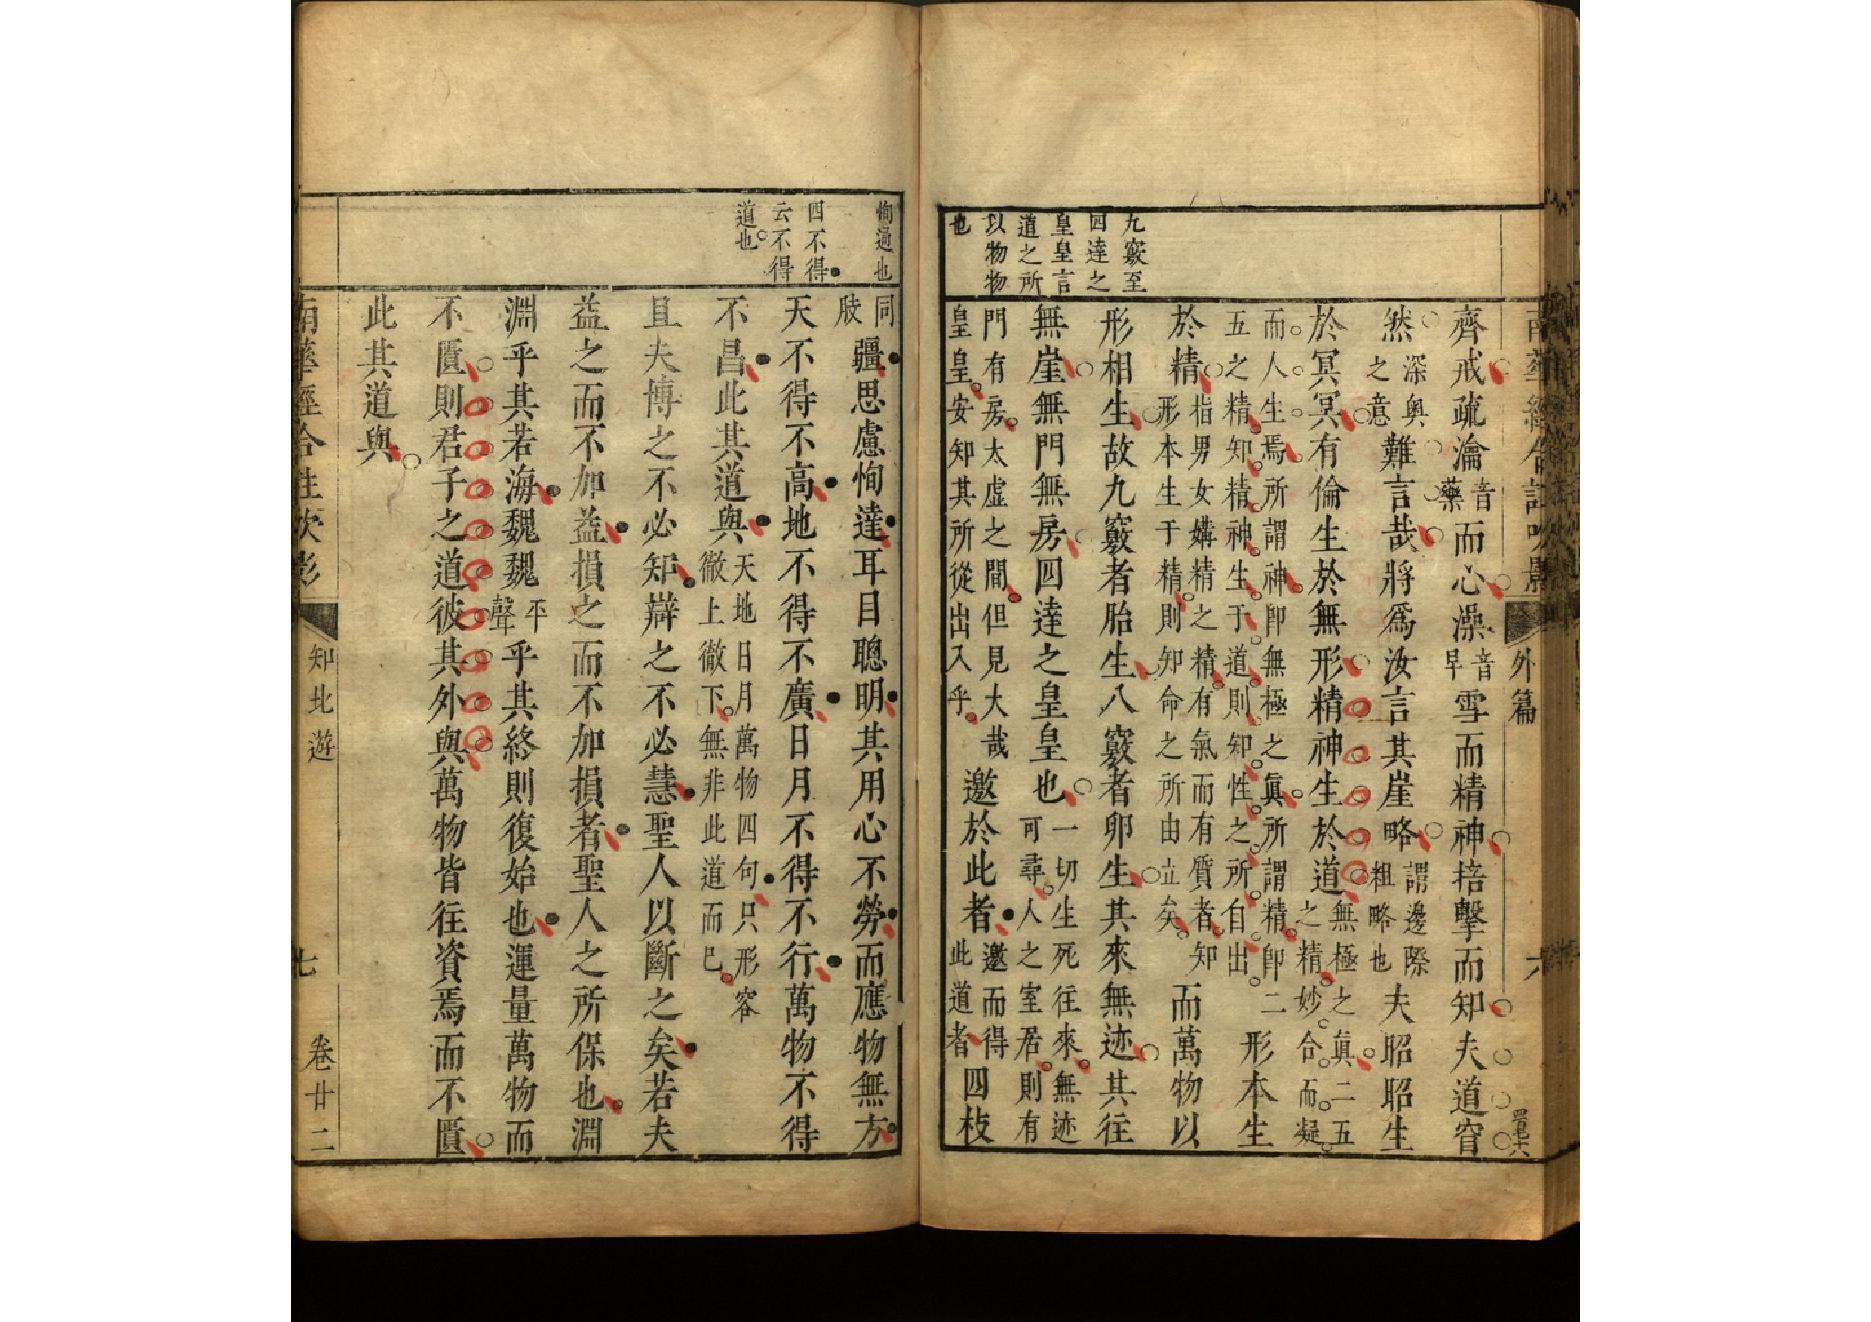 南華經合註吹影
外篇
六
齊戒疏瀹音藥而心澡音早雪而精神掊擊而知夫道窅
然深奥之意難言哉將爲汝言其崖略謂邊際粗略也夫昭昭生
於冥冥有倫生於無形精神生於道無極之真二五之精妙合而凝
而人生焉所謂神卽無極之眞所謂精卽二五之精知精神生于道則知性之所自出形本生
於精指男女媾精之精有氣而有質者知形本生于精則知命之所由立矣而萬物以
形相生故九竅者胎生八竅者卵生其來無迹其往
無崖無門無房四達之皇皇也一切生死往來無迹可尋人之室居則有
門有房太虚之間但見大哉皇皇安知其所從出入乎邀於此者邀而得此道者四枝
九竅至
四達之
皇皇言
道之所
以物物
也
同肢疆思慮恂達耳目聰明其用心不勞而應物無方
天不得不高地不得不廣日月不得不行萬物不得
不昌此其道與天地日月萬物四句只形容徹上徹下無非此道而已
且夫博之不必知辯之不必慧聖人以斷之矣若夫
益之而不加益損之而不加損者聖人之所保也淵
淵乎其若海魏魏平聲乎其終則復始也運量萬物而
不匱則君子之道彼其外與萬物皆往資焉而不匱
此其道與
恂通也
四不得
云不得
道也
南華經合註吹影
知北遊
七
卷廿二